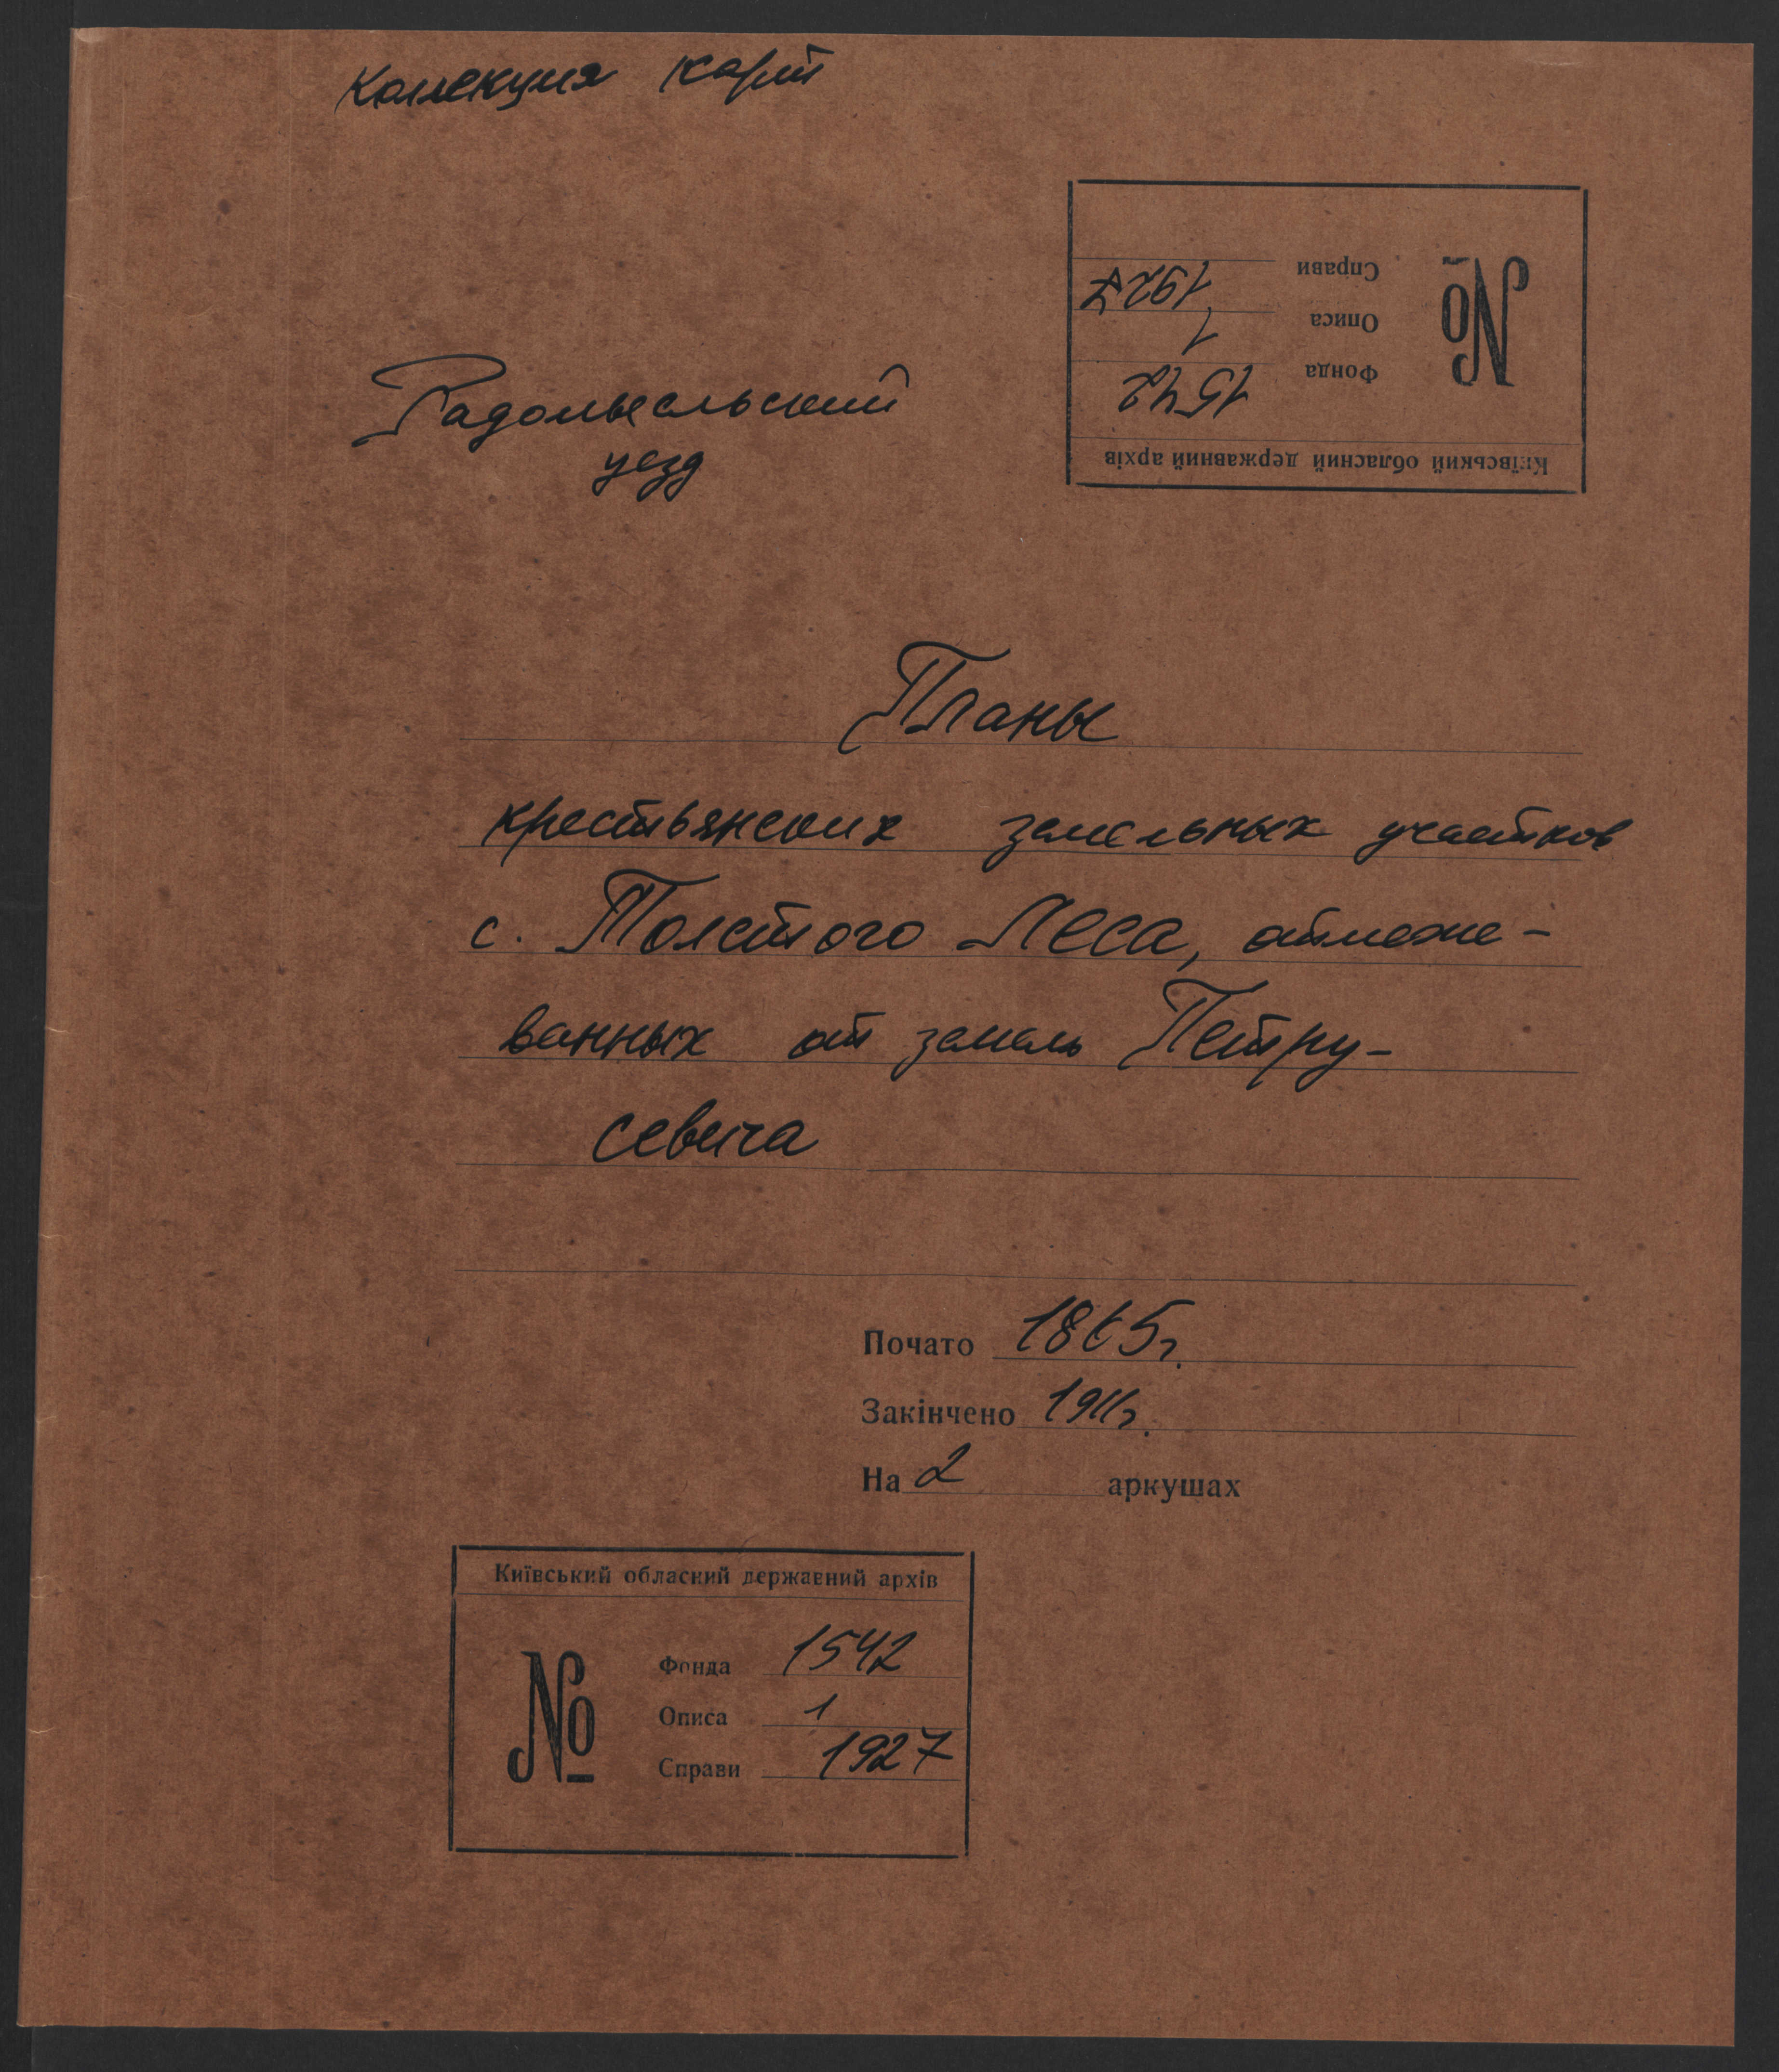 Коллекция карт
Киïвський обласний державний архів
№
Фонда 1542
Описа 1
Справи 1927
Радомысльский
уезд
Планы
крестьянских земельных участков
с. Толстого Леса, отмеже-
ванных от земель Петру-
севича
Почато 1865г.
Закінчено 1911г.
На 2 аркушах
Київський обласний державний архів
№
Фонда 1542
Описа 1
Справи 1927